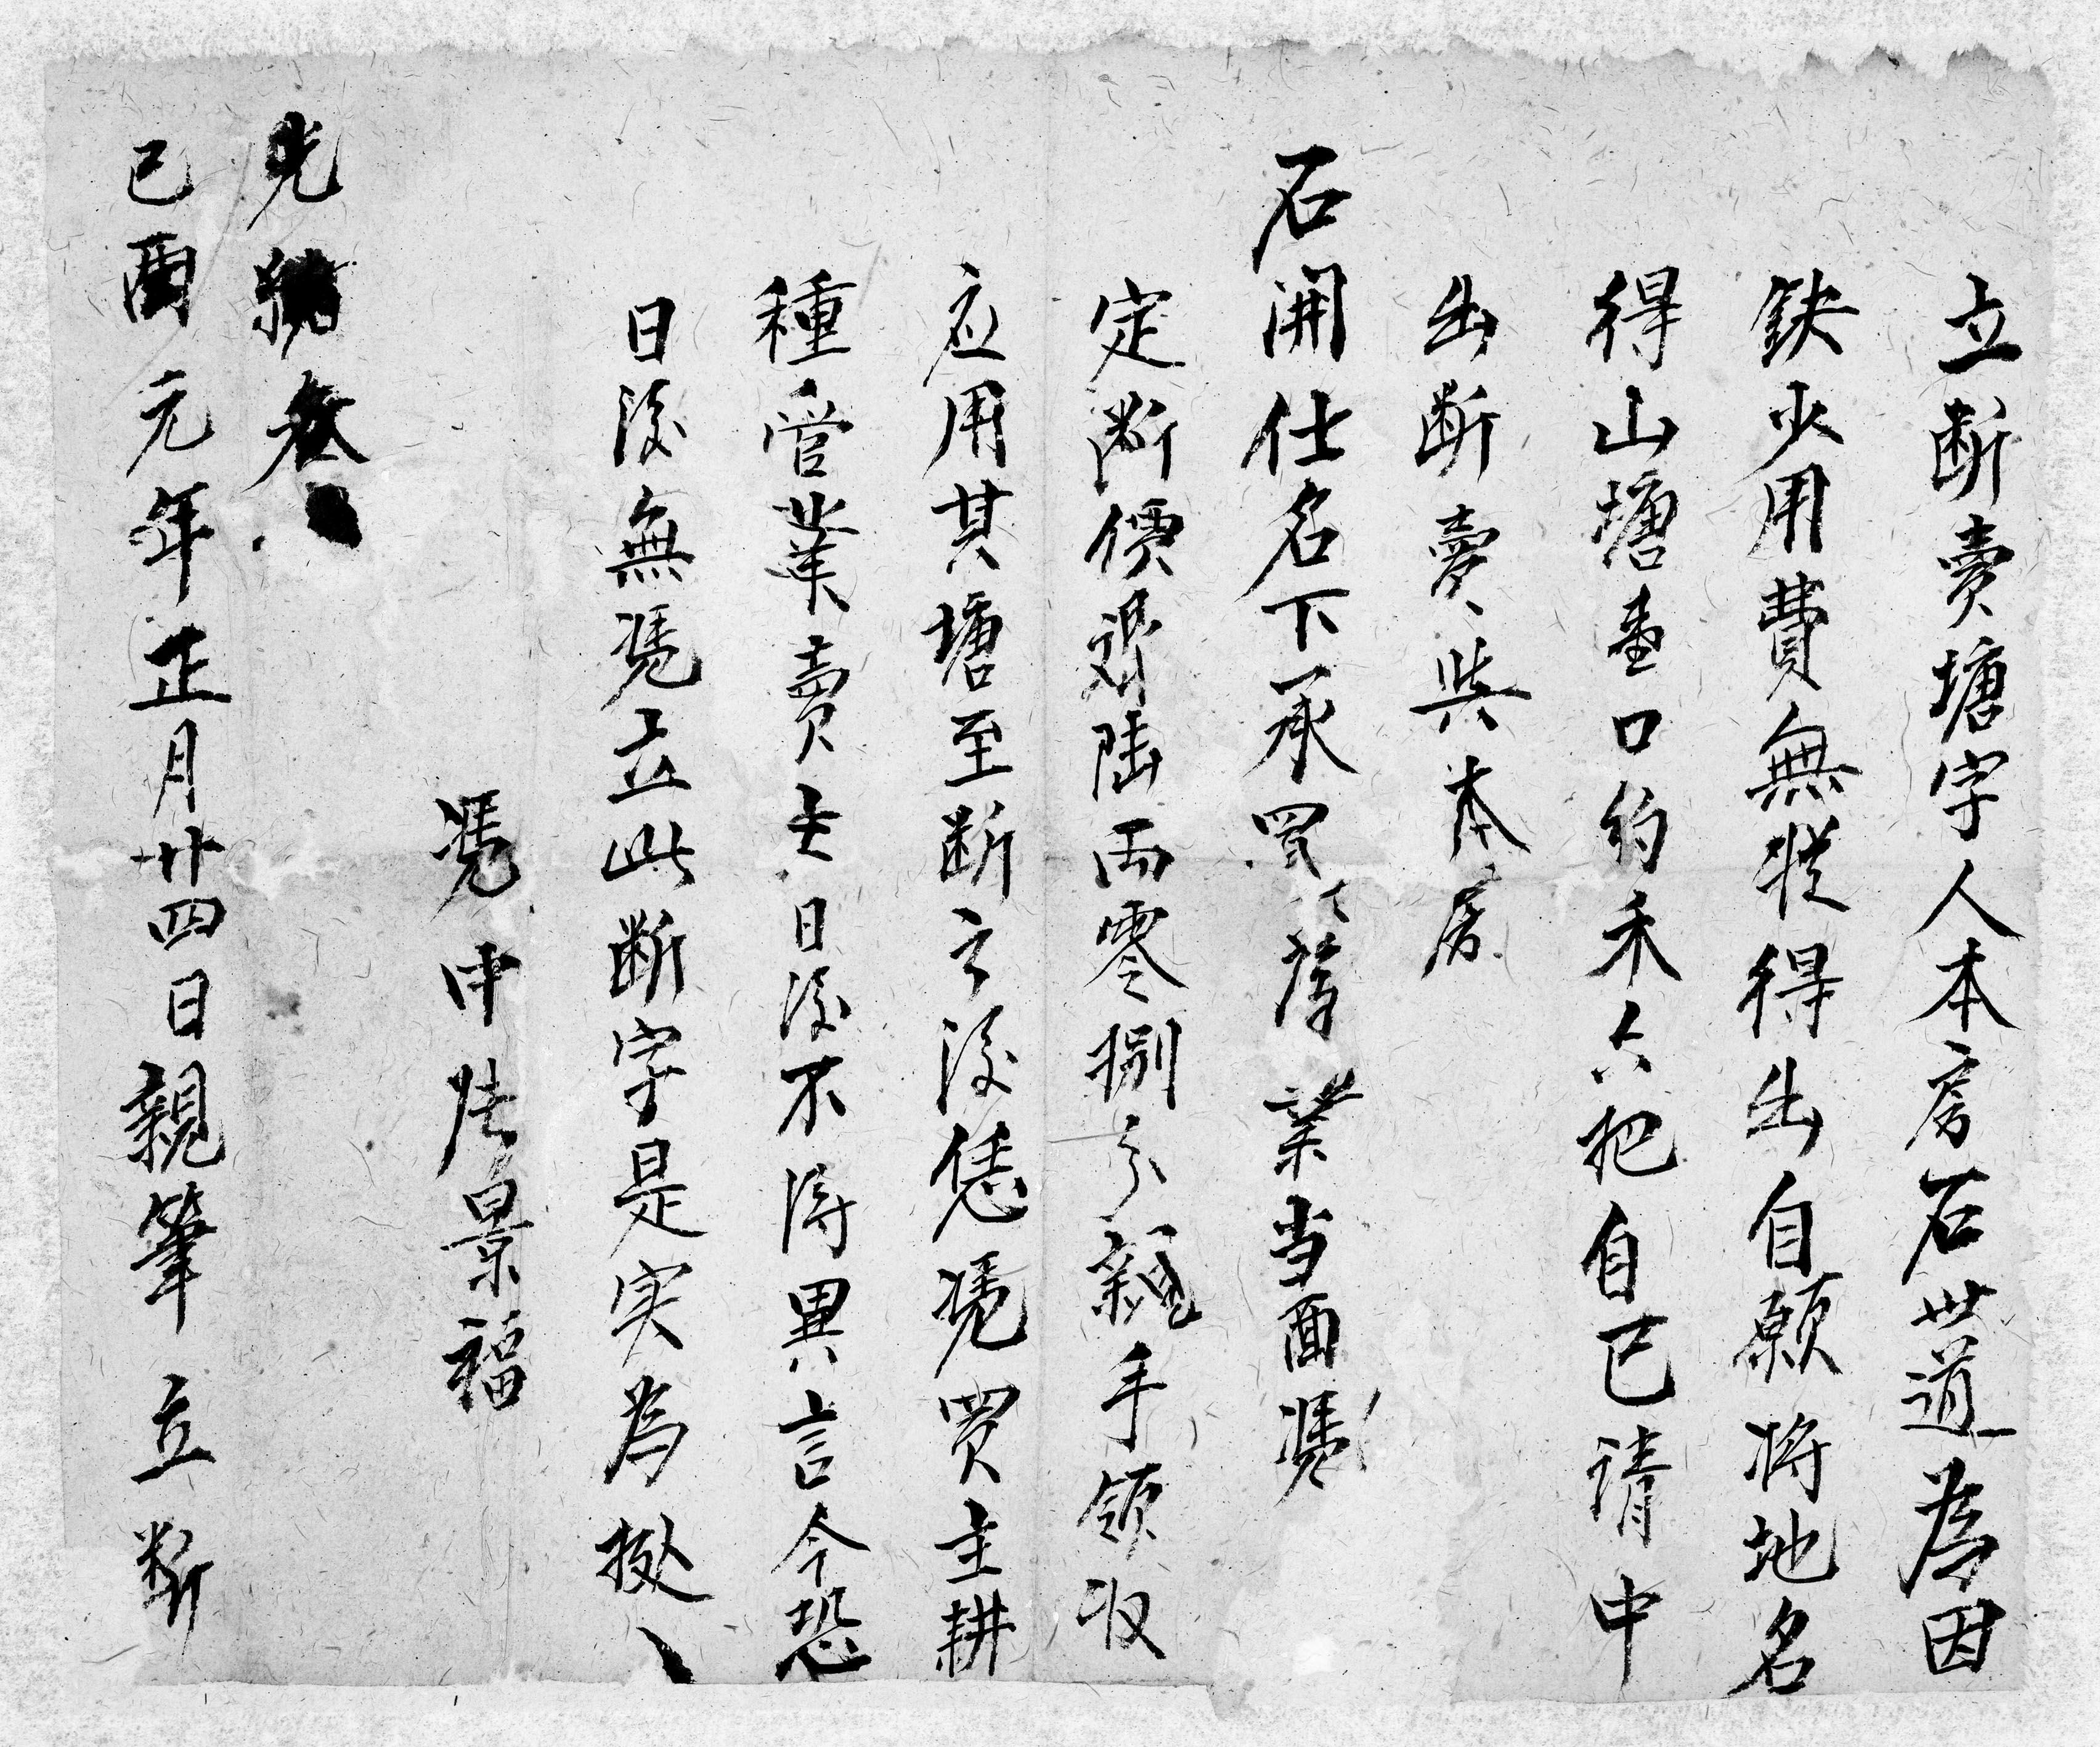 立断賣塘字人本房石世道為因
缺少用費無從得出自願将地名
得山塘壹口約禾六把自己請中
出断賣與本房
石開仕名下承買為業当面憑
定断價銀陆両零捌分親手領收
应用其塘至断之後恁憑買主耕
種管業賣主日後不得異言今恐
日後無憑立此断字是实為挍
憑中陆景福
光緒叁
已酉元年正月廿四日親筆立断